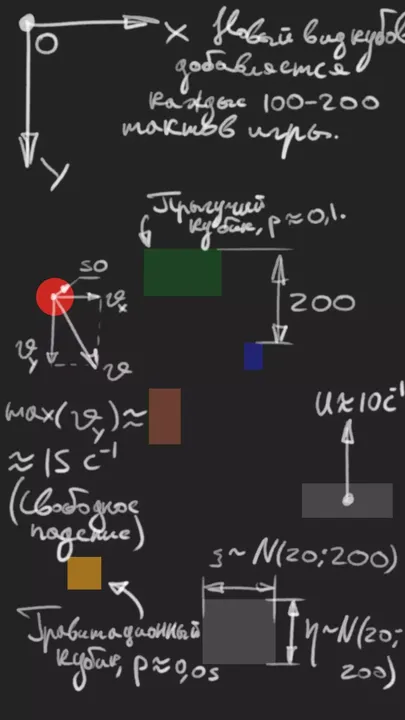 O
X
Новый вид кубов
добавляется
каждые 100-200
тактов игры.
Y
Прыгучий
кубик, p ≈ 0,1.
50
ϑx
200
ϑy
ϑ
max(ϑy) ≈
≈ 15 c⁻¹
(Свободное
падение)
U ≈ 10 c⁻¹
ξ ~ N(20; 200)
Гравитационный
кубик, p ≈ 0,05
η ~ N(20;
200)